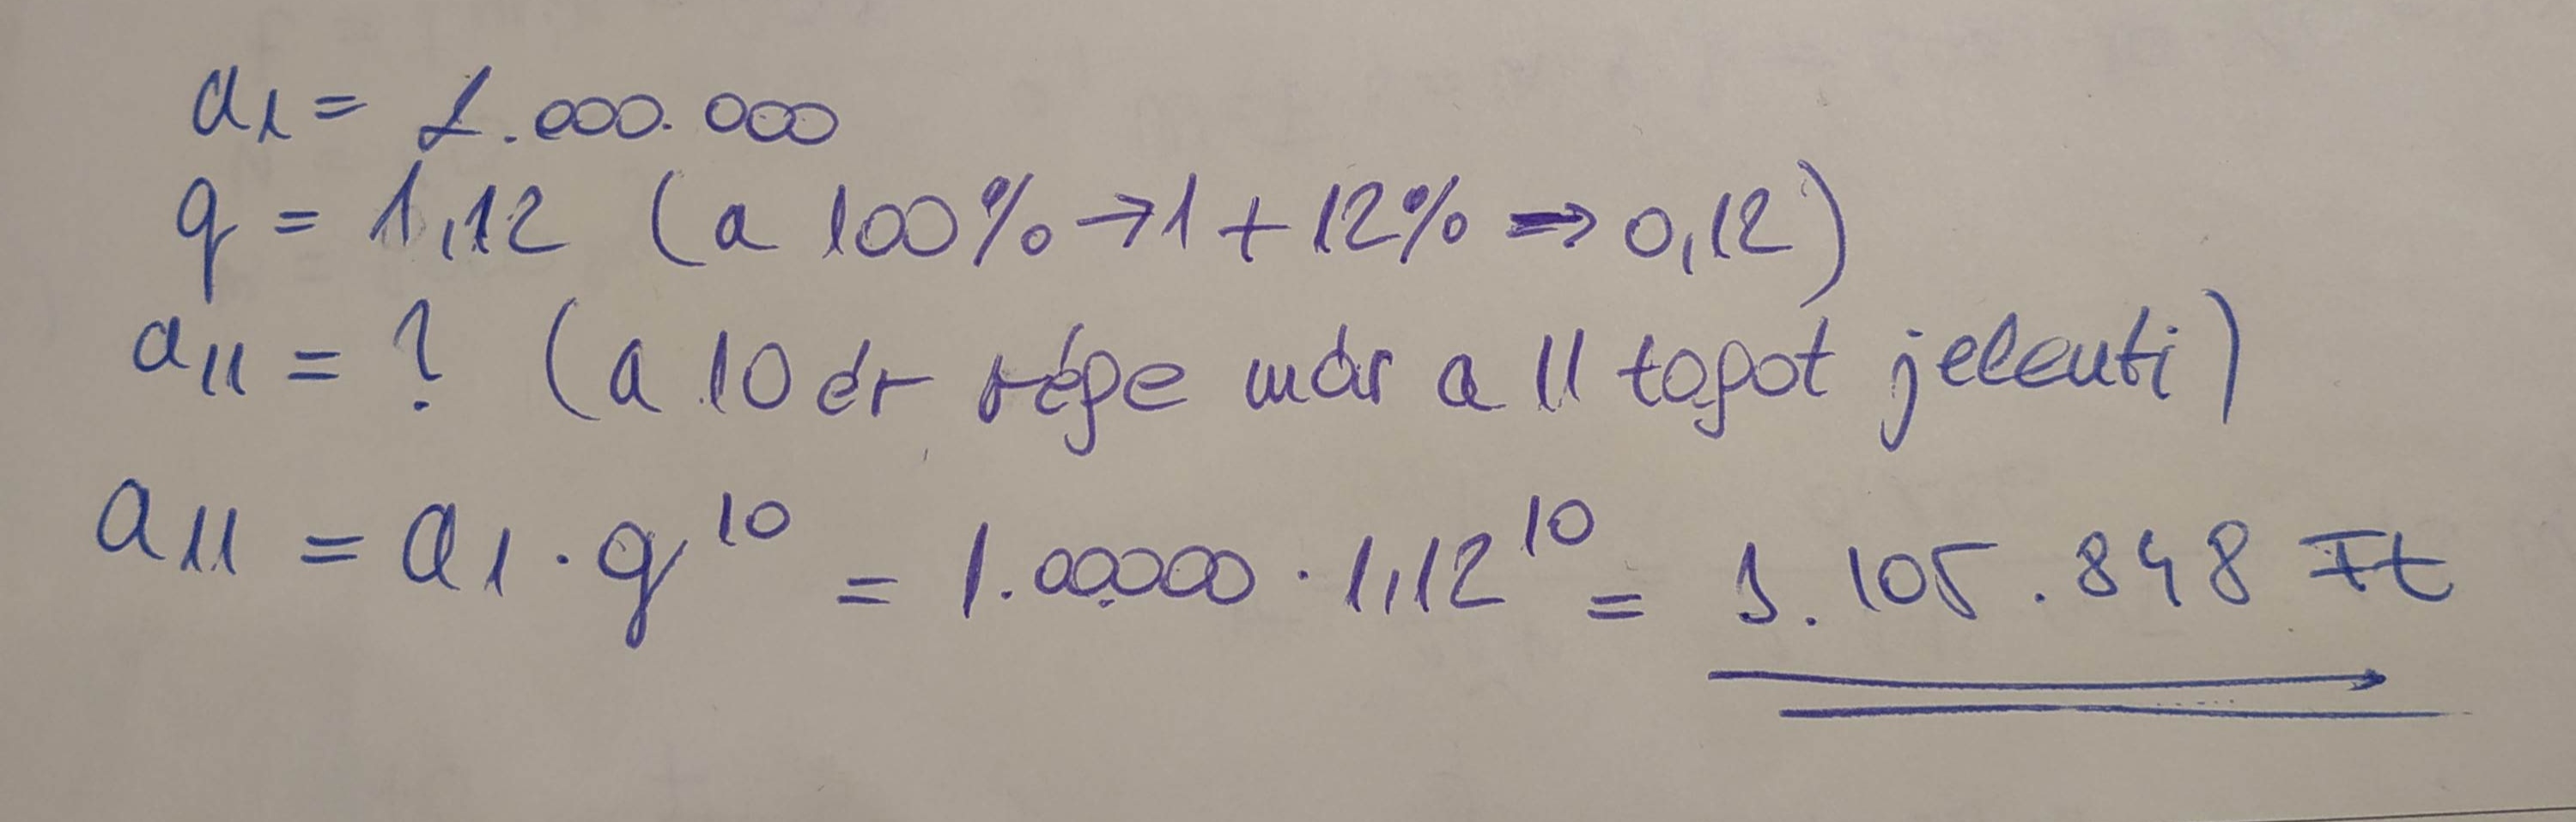 a1 = 1.000.000
q = 1,12 (a 100% → 1 + 12% ⇒ 0,12)
a11 = ? (a 10 év vége már a 11 tagot jelenti)
a11 = a1 · q^10 = 1.000.000 · 1,12^10 = 3.105.848 Ft